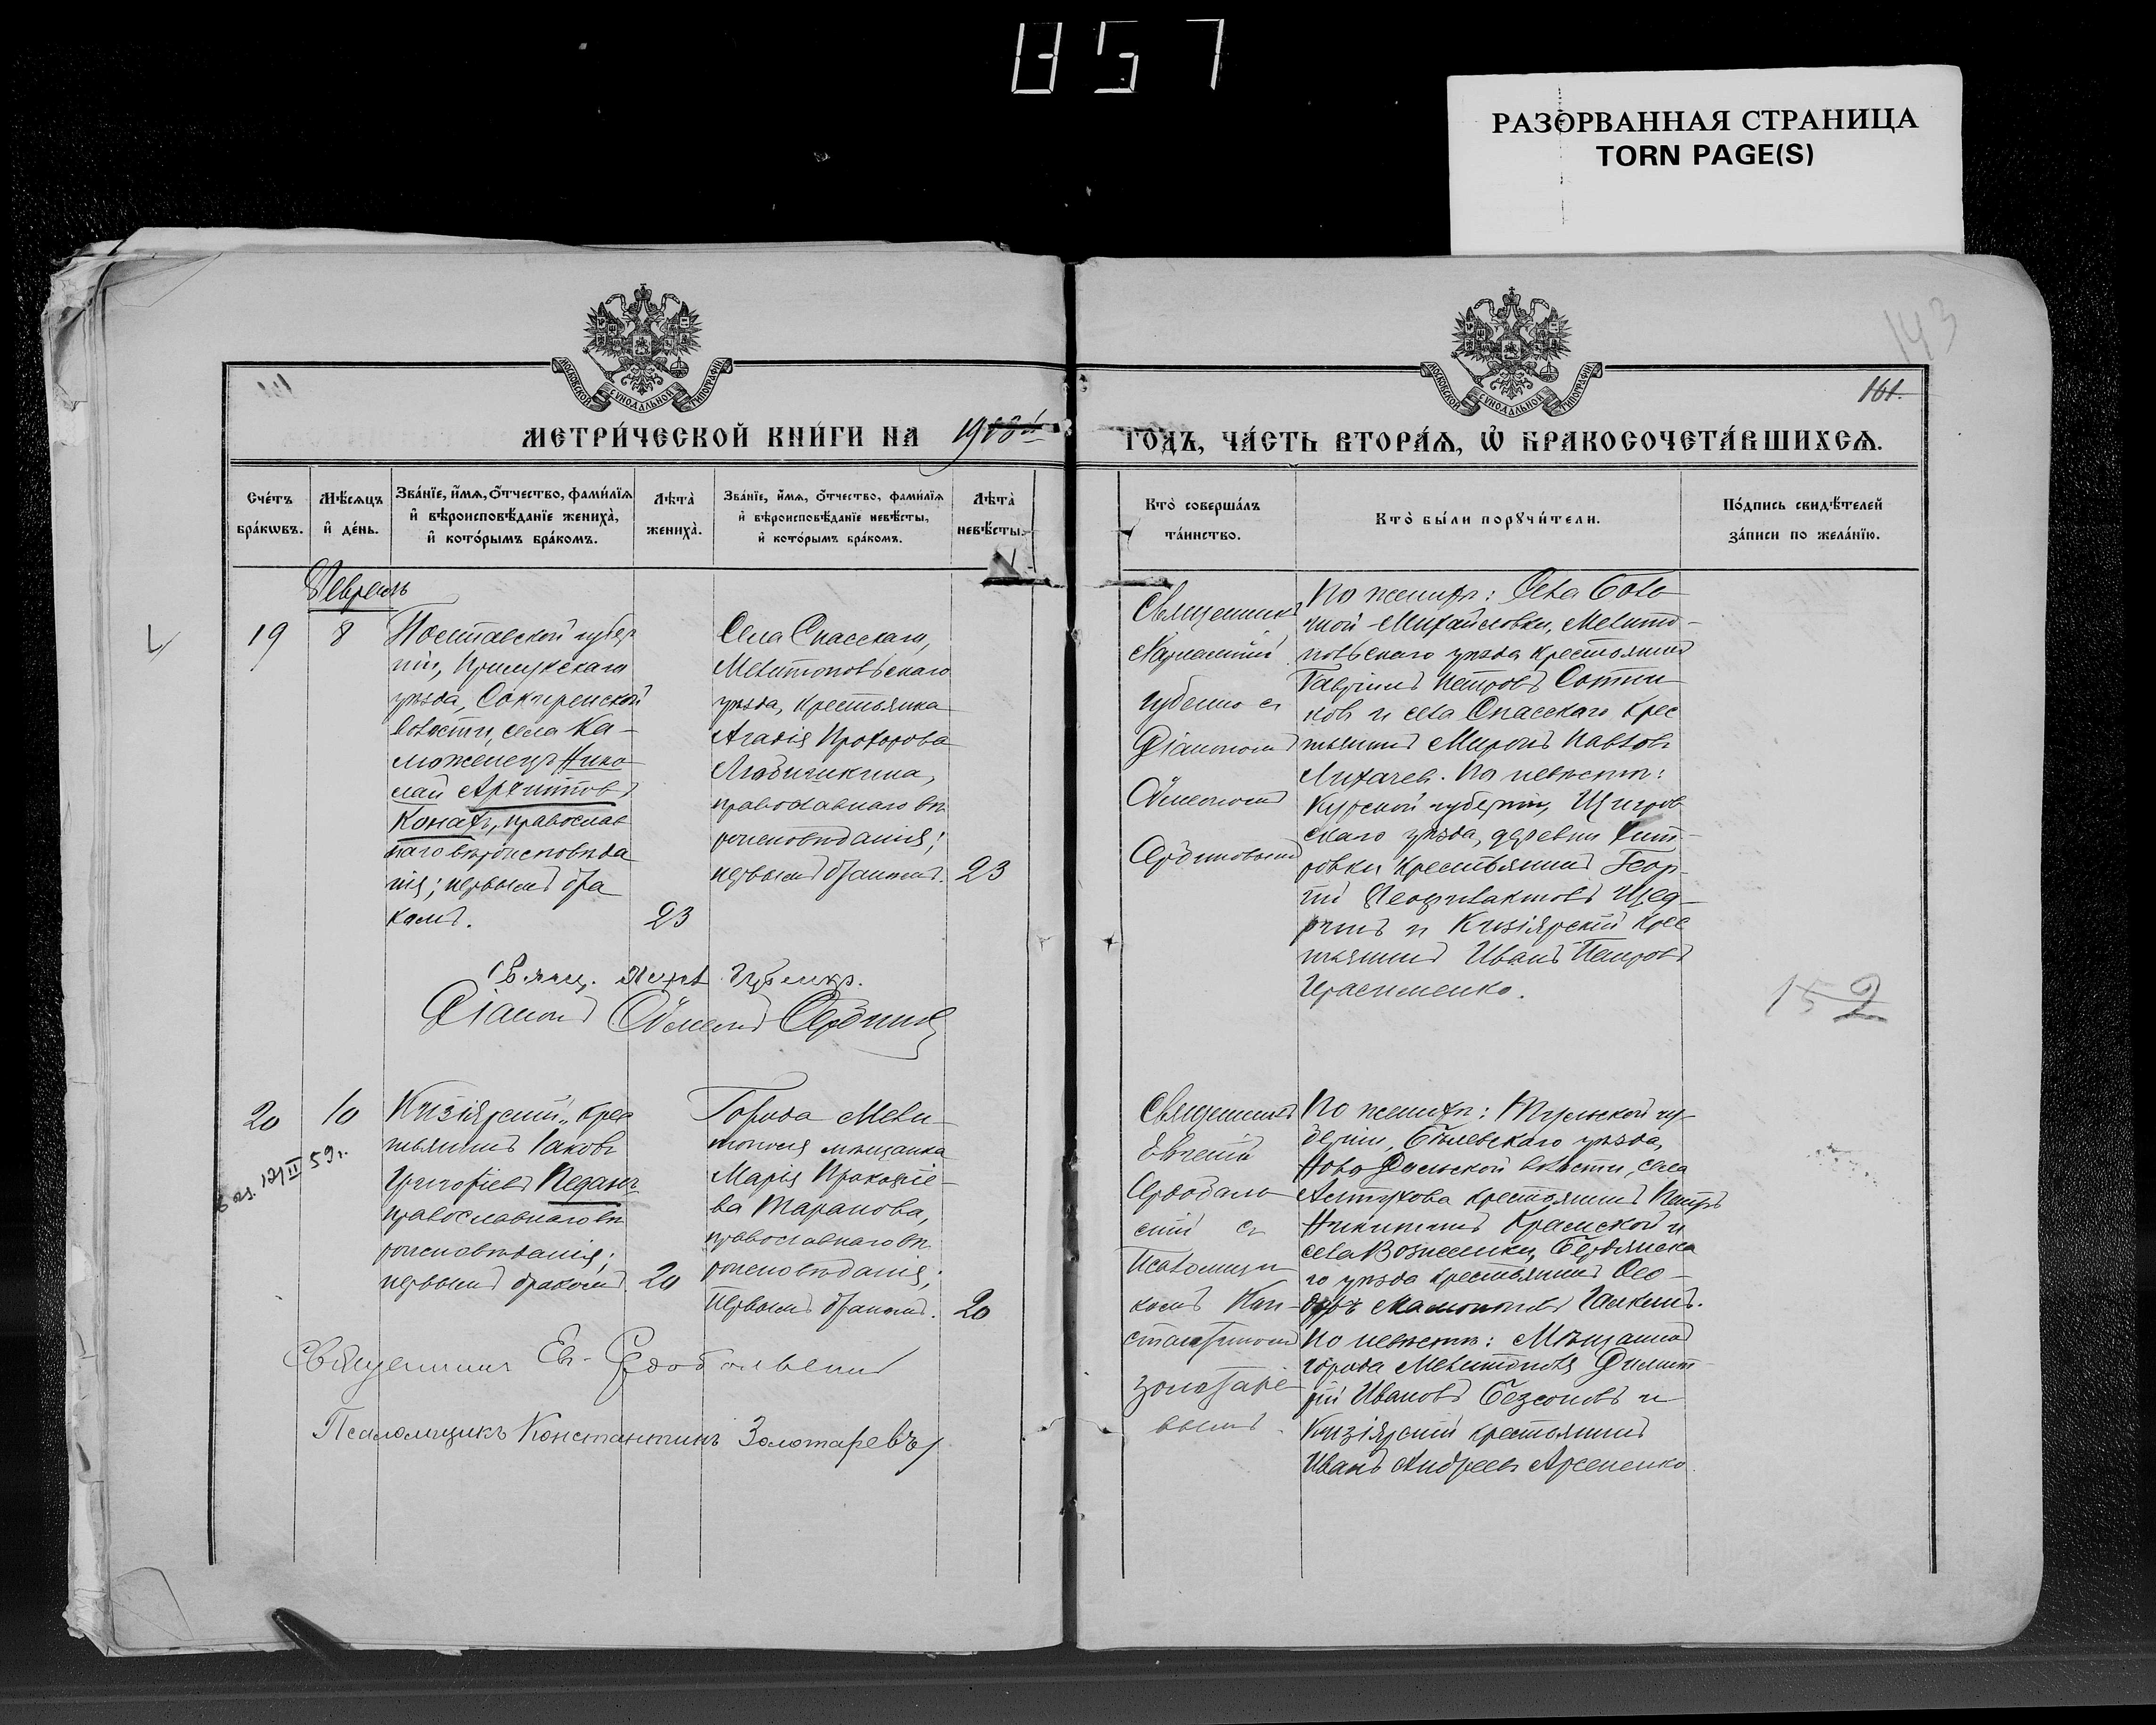 857
РАЗОРВАННАЯ СТРАНИЦА
TORN PAGE(S)
143
161.
МОСКОВСКОЙ СѴНОДАЛЬНОЙ ТИПОГРАФІИ
МОСКОВСКОЙ СѴНОДАЛЬНОЙ ТИПОГРАФІИ
МЕТРИ́ЧЕСКОЙ КНИ́ГИ НА 1918й
ГОДЪ, ЧА́СТЬ ВТОРА́Ѧ, Ѡ҆ БРАКОСОЧЕТА́ВШИХСѦ.
Сче́тъ бра́кѡвъ.
Мѣ́сѧцъ и҆ де́нь.
Зва́нїе, и҆́мѧ, ѻ҆́тчество, фами́лїѧ
и҆ вѣроисповѣ́данїе жениха̀,
и҆ кото́рымъ бра́комъ.
Лѣта̀ жениха̀.
Зва́нїе, и҆́мѧ, ѻ҆́тчество, фами́лїѧ
и҆ вѣроисповѣ́данїе невѣ́сты,
и҆ кото́рымъ бра́комъ.
Лѣта̀ невѣ́сты.
Кто̀ соверша́лъ та́инство.
Кто̀ бы́ли порꙋчи́тели.
По́дпись свидѣ́телей за́писи по жела́нїю.
Февраль
19
8
Полтавской губер
ніи, Прилукскаго
уѣзда, Сокиренской
волости, села Ка-
моженецъ Нико
лай Архиповъ
Конахъ, православ
наго вѣроисповѣда
нія; первымъ бра
комъ.
23
Села Спасскаго,
Мелитопольскаго
уѣзда, крестьянка
Агафія Прохорова
православнаго вѣ
роисповѣданія;
первымъ бракомъ. 23
Священникъ
Губенко съ
Діакономъ
Симеономъ
По женихѣ: Села
Михайловки, Мелито-
польскаго уѣзда крестьянинъ
Гавріилъ Петровъ Сотни
ковъ и села Спасскаго крес
тьянинъ Миронъ Павловъ
Лихачевъ. По невѣстѣ:
Курской губерніи, Щигров
скаго уѣзда, деревни
ровки крестьянинъ Геор-
гій Феофилактовъ Щед-
ринъ и Кизіярскій крес
тьянинъ Иванъ Петровъ
Герасименко.
Свящ. Губенко.
Діаконъ Симеонъ
152
20
10
Кизіярскій крес
тьянинъ Іаковъ
Григорьевъ Педанъ
православнаго вѣ
роисповѣданія;
первымъ бракомъ 20
12/II 59г.
Города Мели-
тополя мѣщанка
Марія Прокофіе-
ва Таранова,
православнаго вѣ
роисповѣданія;
первымъ бракомъ. 20
Священникъ
Евгеній
Сердоболь
скій съ
Псаломщи
комъ Кон-
стантиномъ
Золотаре
вымъ.
По женихѣ: Тульской гу-
берніи, Бѣлевскаго уѣзда,
волости, села
крестьянинъ Петръ
Никитинъ Крамской и
села Вознесенки, Бердянска
го уѣзда крестьянинъ Ѳео-
доръ Мамонтовъ Галкинъ.
По невѣстѣ: Мѣщанинъ
города Мелитополя Димит
рій Ивановъ Безсоновъ и
Кизіярскій крестьянинъ
Иванъ Андреевъ Арсененко.
Священникъ Ев. Сердобольскій
Псаломщикъ Константинъ Золотаревъ